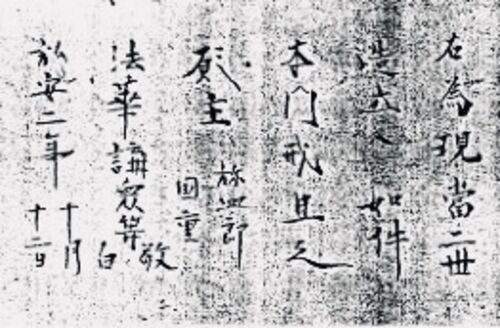 右為現當二世
造立 如件
本門戒且之
願主 弥四郎
国重
法華講衆等敬
白
弘安二年十月
十二日